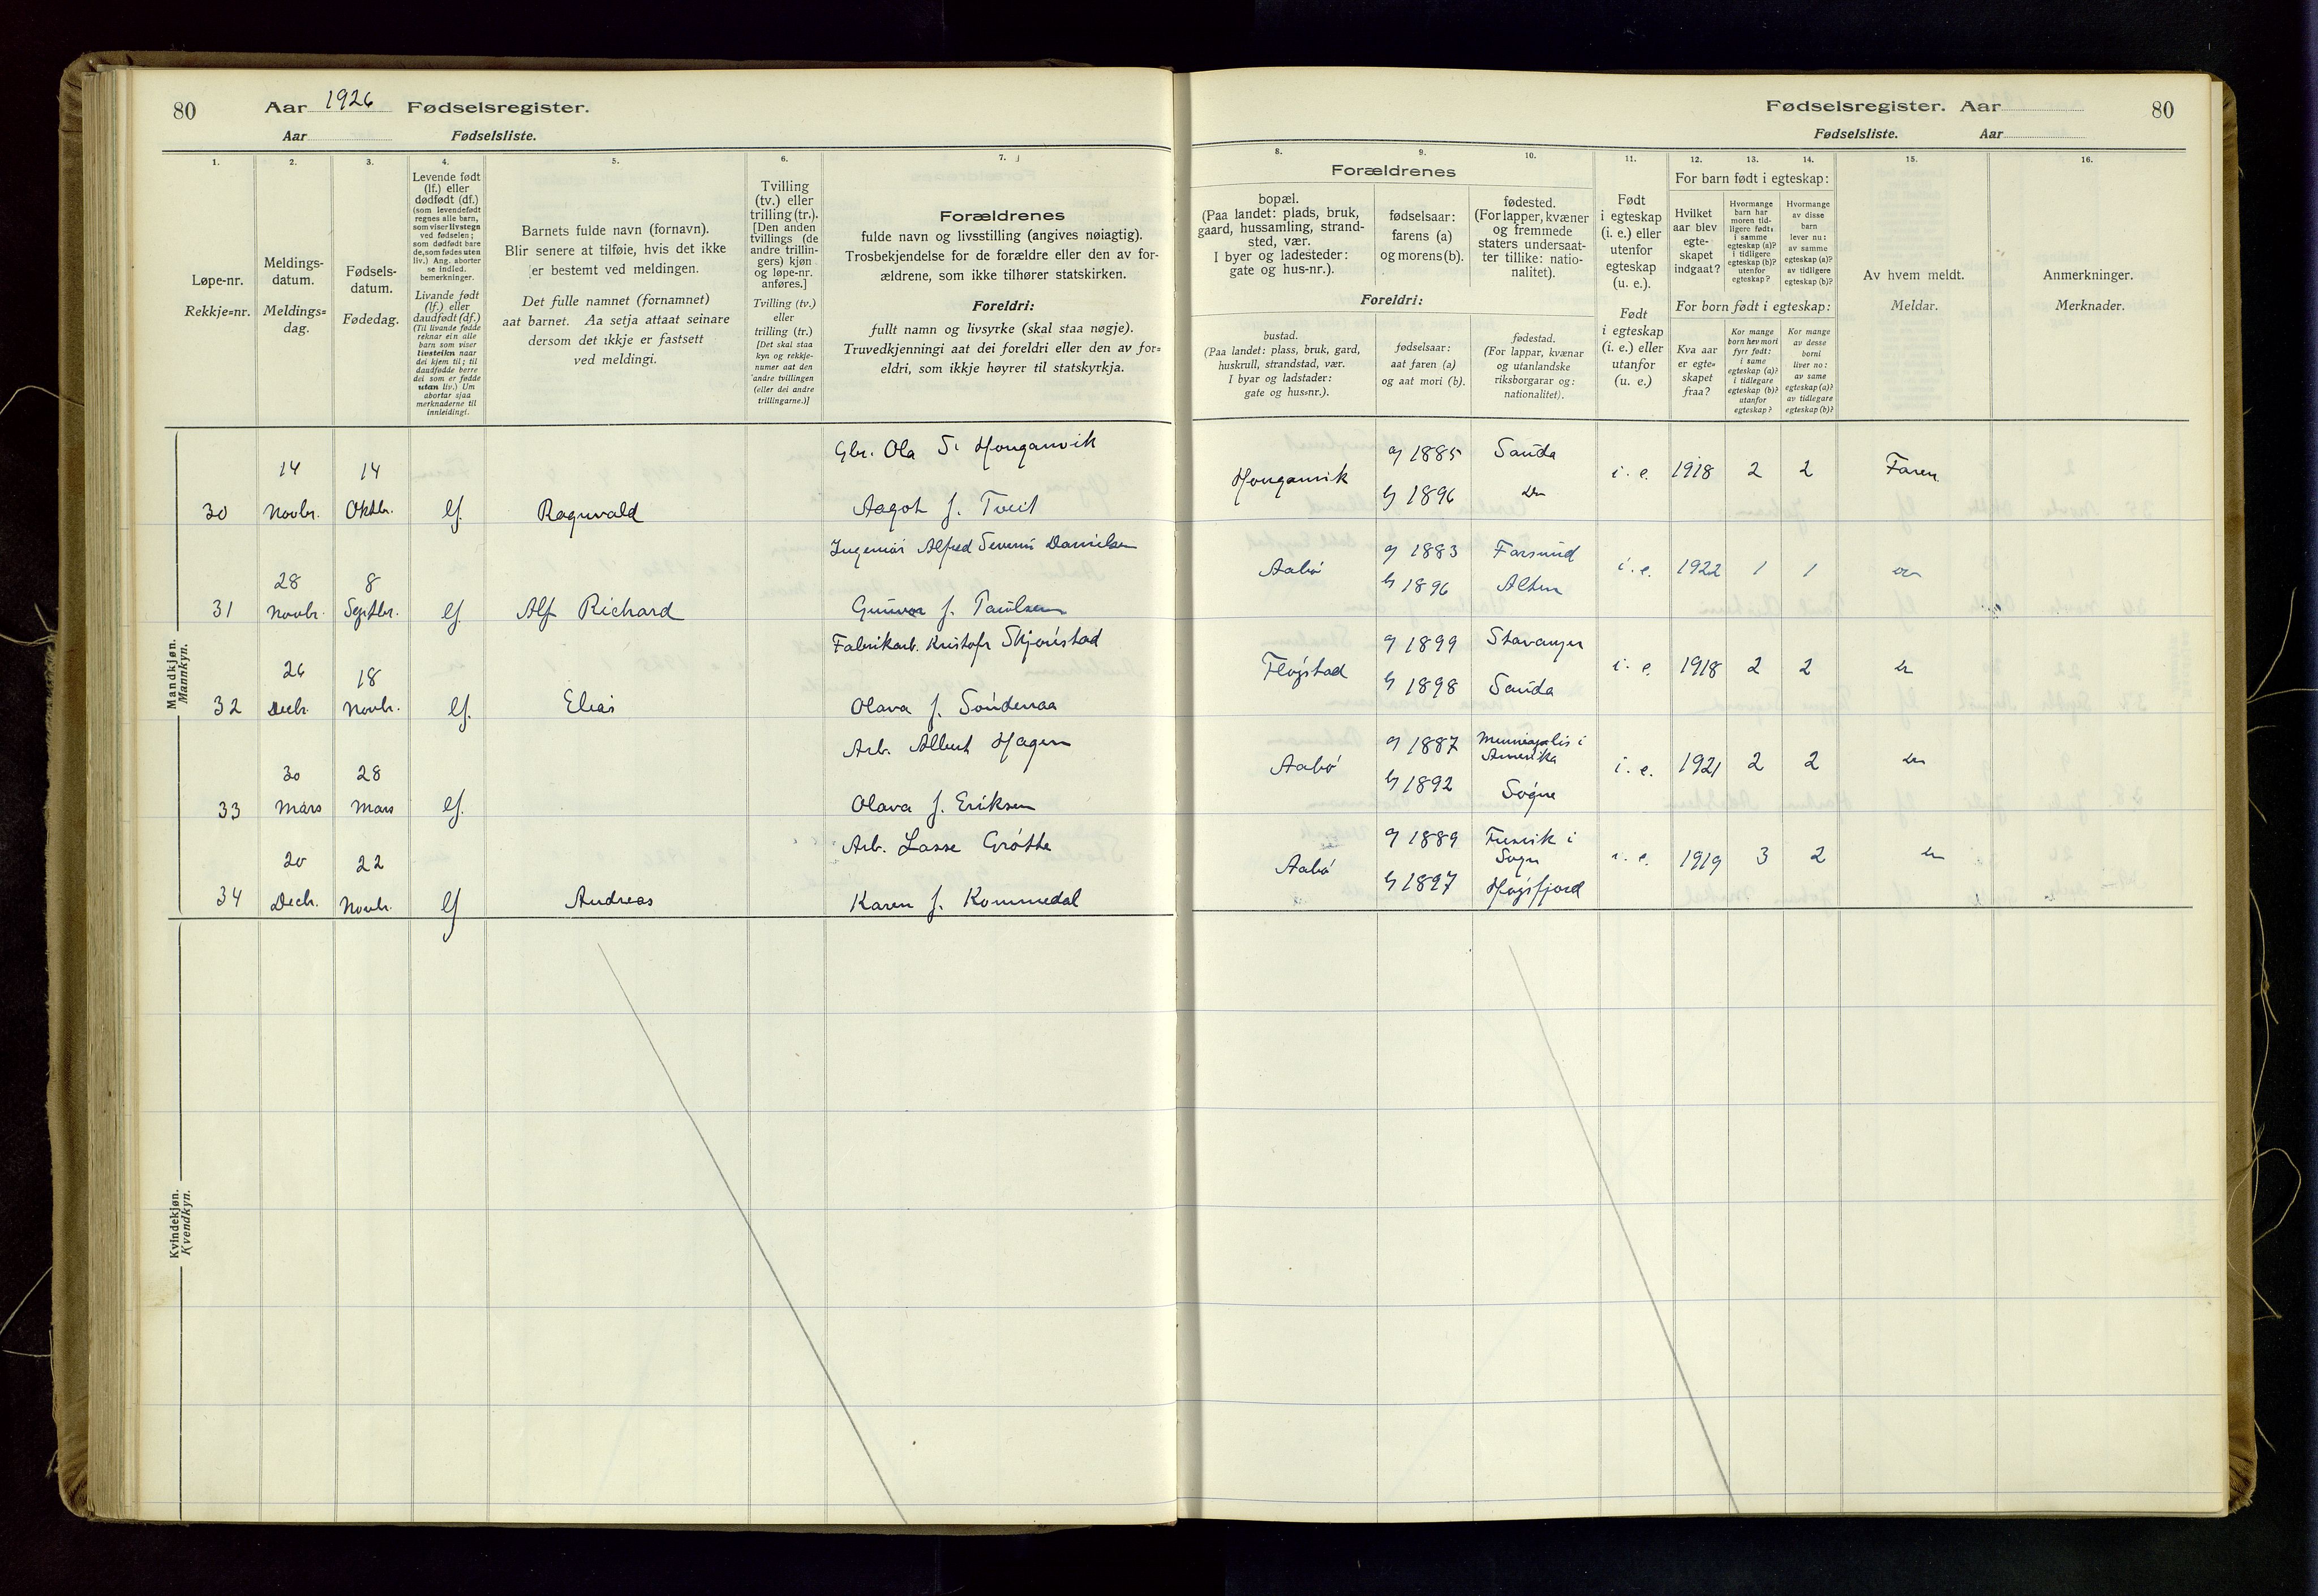 80
Aar 1926 Fødselsregister.
Aar Fødselsliste.
Fødselsregister. Aar
80
Fødselsliste. Aar
1.
Løpe-nr.
Rekkje=nr.
2.
Meldings-
datum.
Meldings=
dag.
3.
Fødsels-
datum.
Fødedag.
4.
Levende født
(lf.) eller
dødfødt (df.)
(som levendefødt
regnes alle barn,
som viser livstegn
ved fødselen;
som dødfødt bare
de, som fødes uten
liv.) Ang. aborter
se indled.
bemerkninger.
Livande født
(lf.) eller
daudfødt (df.)
(Til livande fødde
reknar ein alle
barn som viser
livsteikn naar
dei kjem til; til
daudfødde berre
dei som er fødde
utan liv.) Um
abortar sjaa
merknaderne til
innleidingi.
5.
Barnets fulde navn (fornavn).
Blir senere at tilføie, hvis det ikke
er bestemt ved meldingen.
Det fulle namnet (fornamnet)
aat barnet. Aa setja attaat seinare
dersom det ikkje er fastsett
ved meldingi.
6.
Tvilling
(tv.) eller
trilling (tr.).
[Den anden
tvillings (de
andre trillin-
gers) kjøn
og løpe-nr.
anføres.]
Tvilling (tv.)
eller
trilling (tr.)
[Det skal staa
kyn og rekkje-
numer aat den
andre tvillingen
(eller dei andre
trillingarne.)]
7.
Forældrenes
fulde navn og livsstilling (angives nøiagtig).
Trosbekjendelse for de forældre eller den av for-
ældrene, som ikke tilhører statskirken.
Foreldri:
fullt namn og livsyrke (skal staa nøgje).
Truvedkjenningi aat dei foreldri eller den av for=
eldri, som ikkje høyrer til statskyrkja.
Forældrenes
8.
bopæl.
(Paa landet: plads, bruk,
gaard, hussamling, strand-
sted, vær.
I byer og ladesteder:
gate og hus-nr.).
9.
fødselsaar:
farens (a)
og morens (b).
10.
fødested.
(For lapper, kvæner
og fremmede
staters undersaat-
ter tillike: natio-
nalitet).
Foreldri:
bustad.
(Paa landet: plass, bruk, gard,
huskrull, strandstad, vær.
I byar og ladstader:
gate og hus=nr.).
fødselsaar:
aat faren (a)
og aat mori (b).
fødestad.
(For lappar, kvænar
og utanlandske
riksborgarar og:
nationalitet).
11.
Født
i egteskap
(i. e.) eller
utenfor
egteskap
(u. e.).
Født
i egteskap
(i. e.) eller
utanfor
(u. e.)
12.
13.
14.
For barn født i egteskap:
Hvilket
aar blev
egte-
skapet
indgaat?
Hvormange
barn har
moren tid-
ligere født:
i samme
egteskap (a)?
i tidligere
egteskap (b)?
utenfor
egteskap?
Hvormange
av disse
barn
lever nu:
av samme
egteskap (a)?
av tidligere
egteskap (b)?
For born født i egteskap:
Kva aar
er egte=
skapet
fraa?
Kor mange
born hev mori
fyrr født:
i same
egteskap (a)?
i tidlegare
egteskap (b)?
utanfor
egteskap?
Kor mange
av desse
borni
liver no:
av same
egteskap (a)?
av tidlegare
egteskap (b)?
15.
Av hvem meldt.
Meldar.
16.
Anmerkninger.
Merknader.
Mandkjøn.
Mannkyn.
30 14 Novbr. 14 Oktbr. lf. Ragnvald
Gbr. Ola S. Honganvik
Aagot f. Tveit
Honganvik a 1885 Sauda i. e. 1918 2 2 Faren
b 1896 do
31 28 Novbr. 8 Septbr. lf. Alf Richard
Ingeniør Alfred Severin Danielsen
Gunvor f. Paulsen
Aabø a 1883 Farsund i. e. 1922 1 1 do
b 1896 Alten
32 26 Decbr. 18 Novbr. lf. Elias
Fabrikarb. Kristofr Skjørestad
Olava f. Søndenaa
Fløgstad a 1899 Stavanger i. e. 1918 2 2 do
b 1898 Sauda
33 30 Mars 28 Mars lf.
Arb. Albert Hagen
Olava f. Eriksen
Aabø a 1887 Minneapolis i Amerika i. e. 1921 2 2 do
b 1892 Søgne
34 20 Decb. 22 Novbr. lf Andreas
Arb. Lasse Grøtte
Karen f. Kommedal
Aabø a 1889 i Sogn i. e. 1919 3 2 do
b 1897 Høgsfjord
Kvindekjøn.
Kvendkyn.